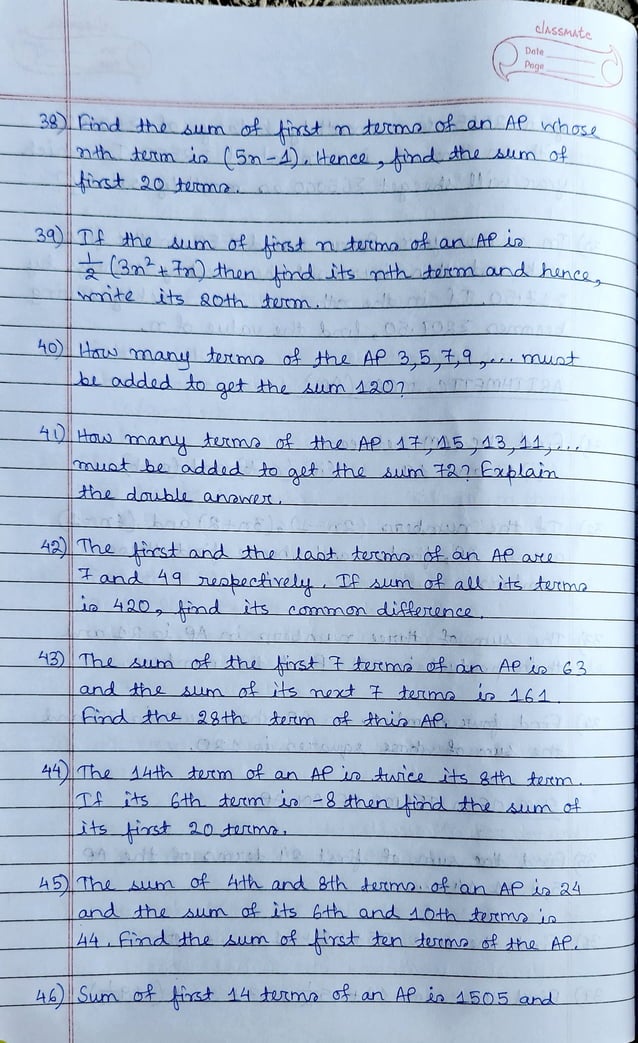 classmate
Date
Page
38) Find the sum of first n terms of an AP whose
nth term is (5n-1). Hence, find the sum of
first 20 terms.
39) If the sum of first n terms of an AP is
1/2 (3n² + 7n) then find its nth term and hence,
write its 20th term.
40) How many terms of the AP 3,5,7,9,... must
be added to get the sum 120?
41) How many terms of the AP 17,15,13,11,...
must be added to get the sum 72? Explain
the double answer.
42) The first and the last terms of an AP are
7 and 49 respectively. If sum of all its terms
is 420, find its common difference.
43) The sum of the first 7 terms of an AP is 63
and the sum of its next 7 terms is 161.
Find the 28th term of this AP.
44) The 14th term of an AP is twice its 8th term.
If its 6th term is -8 then find the sum of
its first 20 terms.
45) The sum of 4th and 8th terms of an AP is 24
and the sum of its 6th and 10th terms is
44. Find the sum of first ten terms of the AP.
46) Sum of first 14 terms of an AP is 1505 and